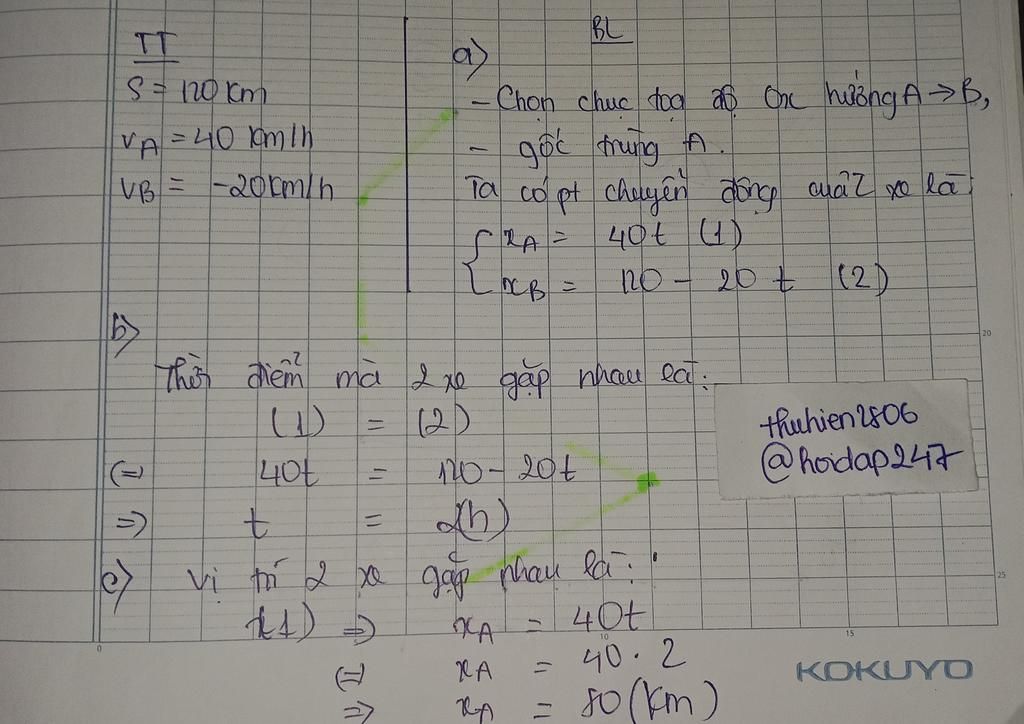 TT
S = 120 km
vA = 40 km/h
vB = -20km/h
BL
a)
- Chọn chục toạ độ Ox hướng A → B,
- gốc trùng A.
Ta có pt chuyển động cuả 2 xe là
{ xA = 40t (1)
xB = 120 - 20 t (2)
b)
Thời điểm mà 2 xe gặp nhau là:
(1) = (2)
(=) 40t = 120 - 20t
=> t = 2(h)
c) Vị trí 2 xe gặp nhau là:
(1) => xA = 40t
(=) xA = 40 . 2
=> xA = 80 (km)
thuhien2806
@hoidap247
20
25
0
10
15
KOKUYO